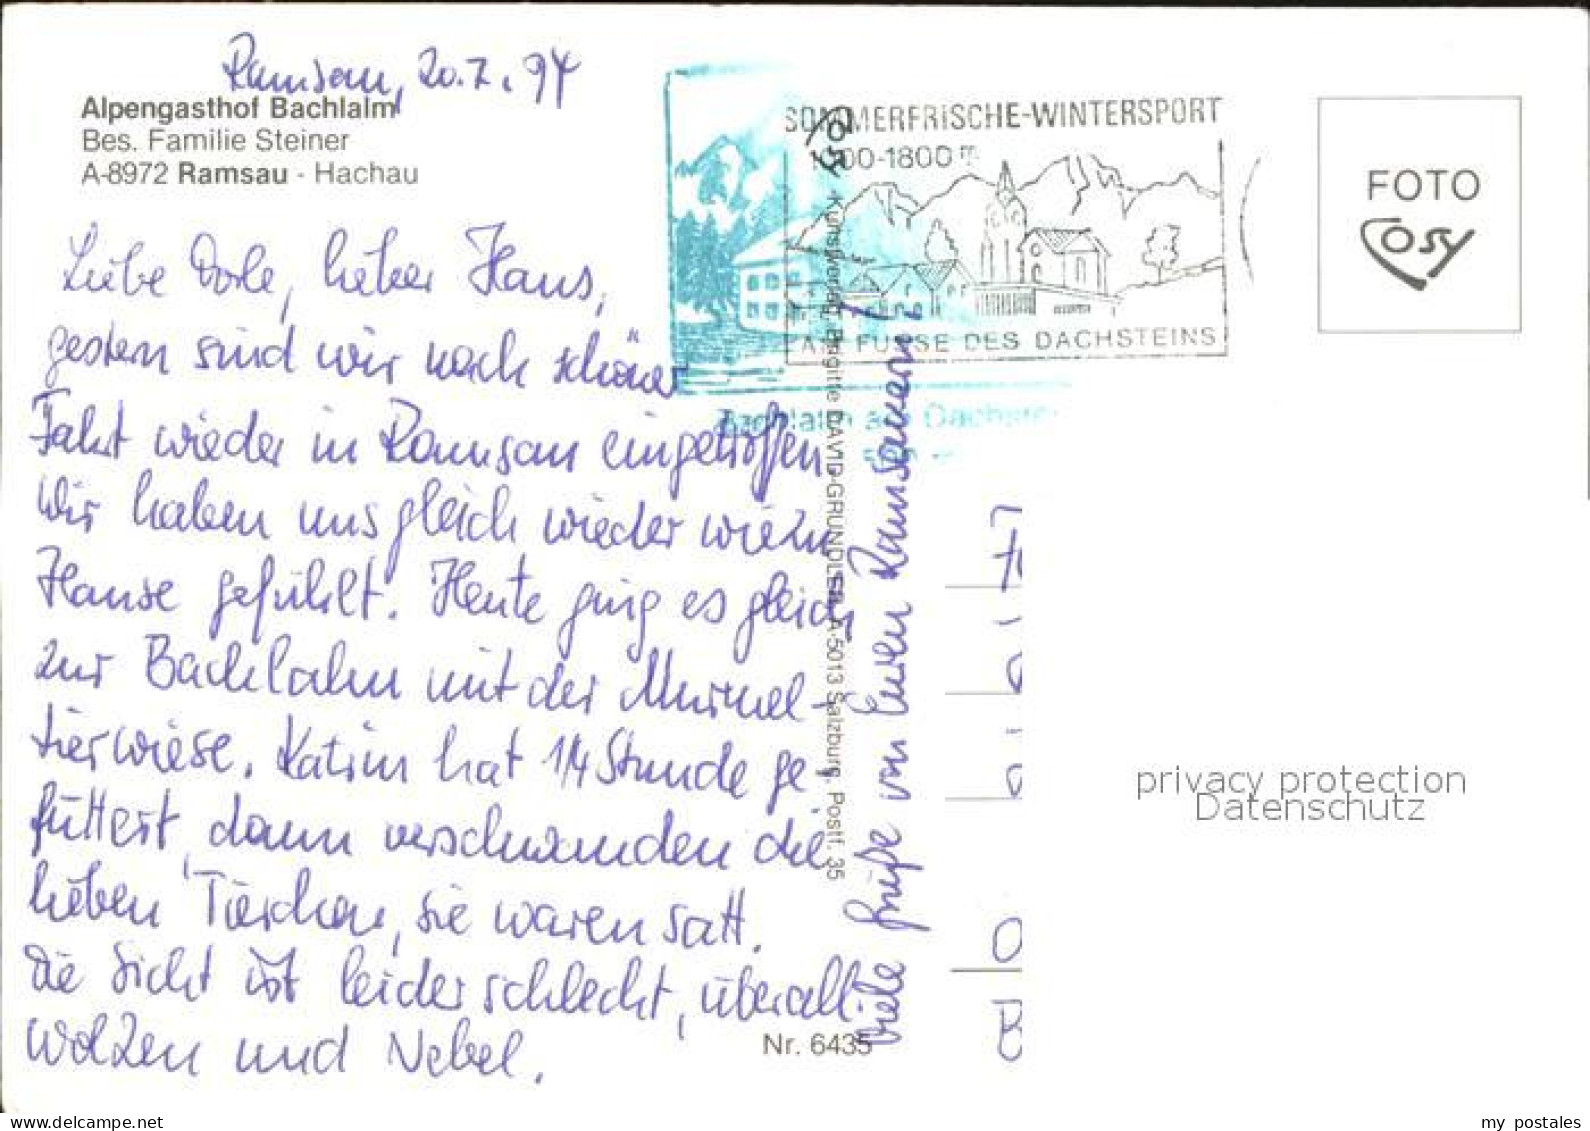 Ramsau, 20.7.94
Alpengasthof Bachlalm
Bes. Familie Steiner
A-8972 Ramsau - Hachau
Liebe Dorle, lieber Hans,
gestern sind wir nach schöner
Fahrt wieder in Ramsau eingetroffen
Wir haben uns gleich wieder wie zu
Hause gefühlt. Heute ging es gleich
zur Bachlalm mit der Murmel-
tierwiese. Katrin hat 1/4 Stunde ge-
füttert, dann verschwanden die
lieben Tierchen, sie waren satt.
Die Sicht ist leider schlecht, überall
Wolken und Nebel.
Viele Grüße von Euren Ramsauern
SOMMERFRISCHE-WINTERSPORT
00-1800 m
AM FUSSE DES DACHSTEINS
Bachlalm am Dachstein
Cosy Kunstverlag Brigitte DAVID-GRUNDLER, A-5013 Salzburg, Postf. 35
Nr. 6435
FOTO
Cosy
privacy protection
Datenschutz
my postales